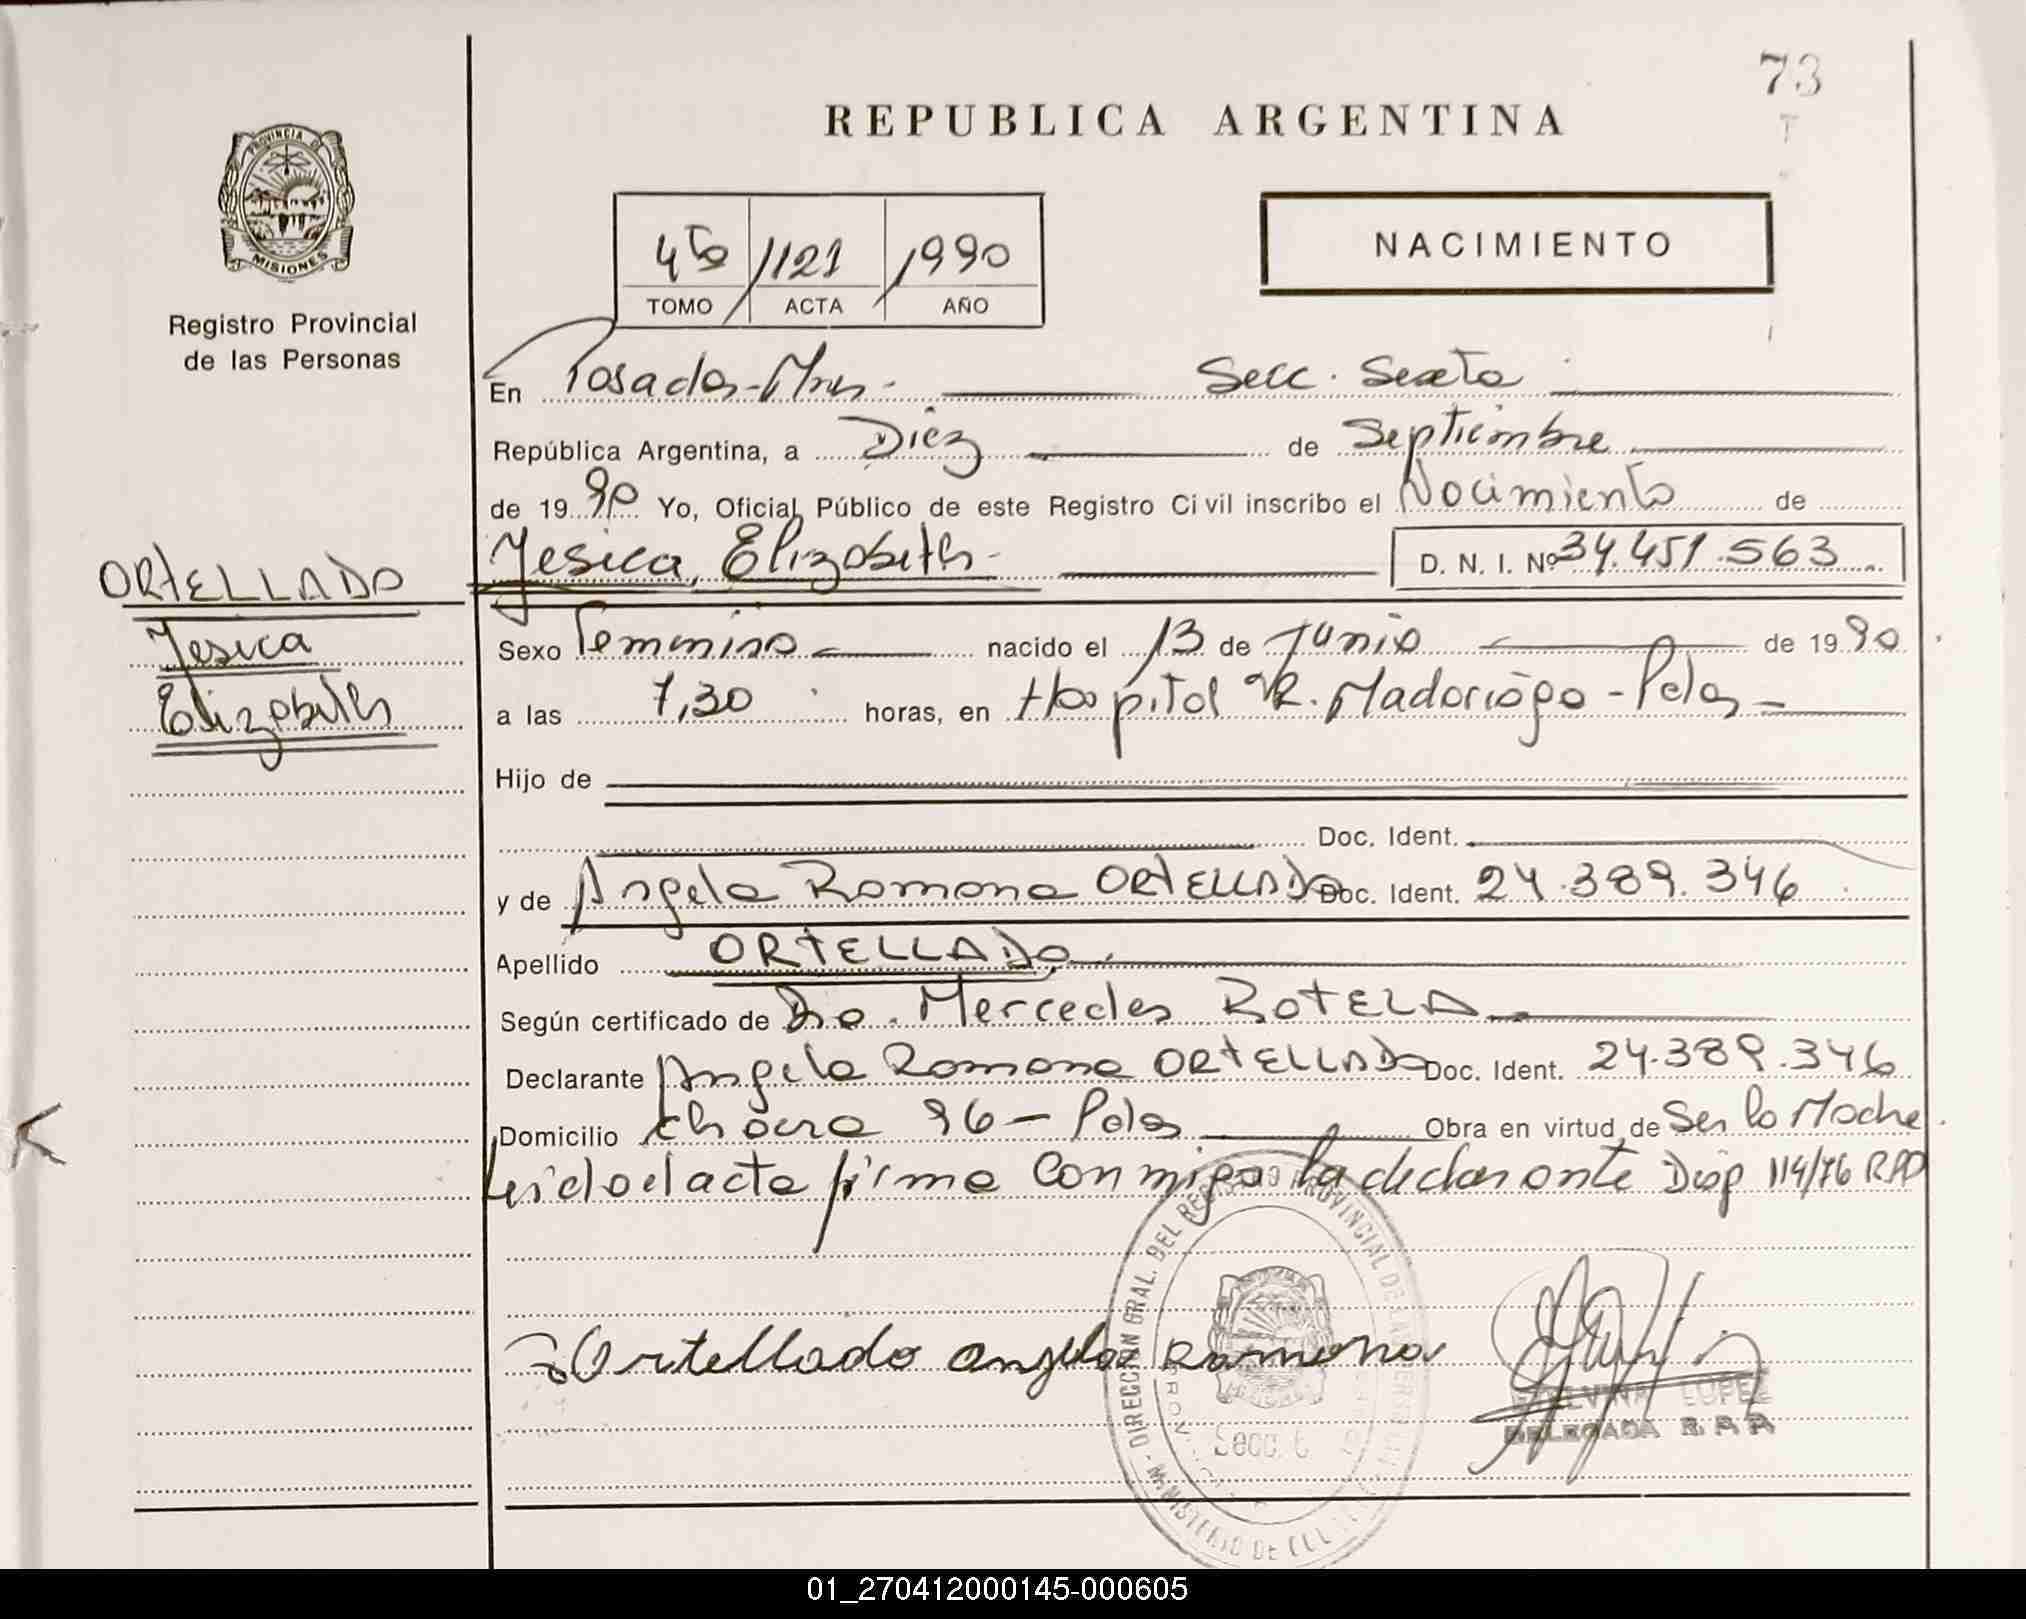 73
REPUBLICA ARGENTINA
PROVINCIA DE
MISIONES
Registro Provincial
de las Personas
4to 1121 1990
TOMO ACTA AÑO
NACIMIENTO
En Posadas-Mnes- Secc. Sexta
República Argentina, a Diez de Septiembre
de 1990 Yo, Oficial Público de este Registro Civil inscribo el Nacimiento de
Yesica, Elizabeth- D. N. I. Nº 34.451.563
ORTELLADO
Yesica
Elizabeth
Sexo Femenino nacido el 13 de Junio de 1990
a las 7,30 horas, en Hospital R. Madariaga - Pdas -
Hijo de
Doc. Ident.
y de Angela Ramona ORTELLADO Doc. Ident. 24.389.346
Apellido ORTELLADO
Según certificado de Dra. Mercedes ROTELA
Declarante Angela Ramona ORTELLADO Doc. Ident. 24.389.346
Domicilio Chacra 96 - Pdas Obra en virtud de Ser la Madre
Leido el acta firma conmigo la declarante Disp 114/76 RPP
Ortellado Angela Ramona
DIRECCION GRAL. DEL REGISTRO PROVINCIAL DE LAS PERSONAS
MINISTERIO DE
Secc. 6
LOPEZ
DELEGADA R.P.P.
01_270412000145-000605